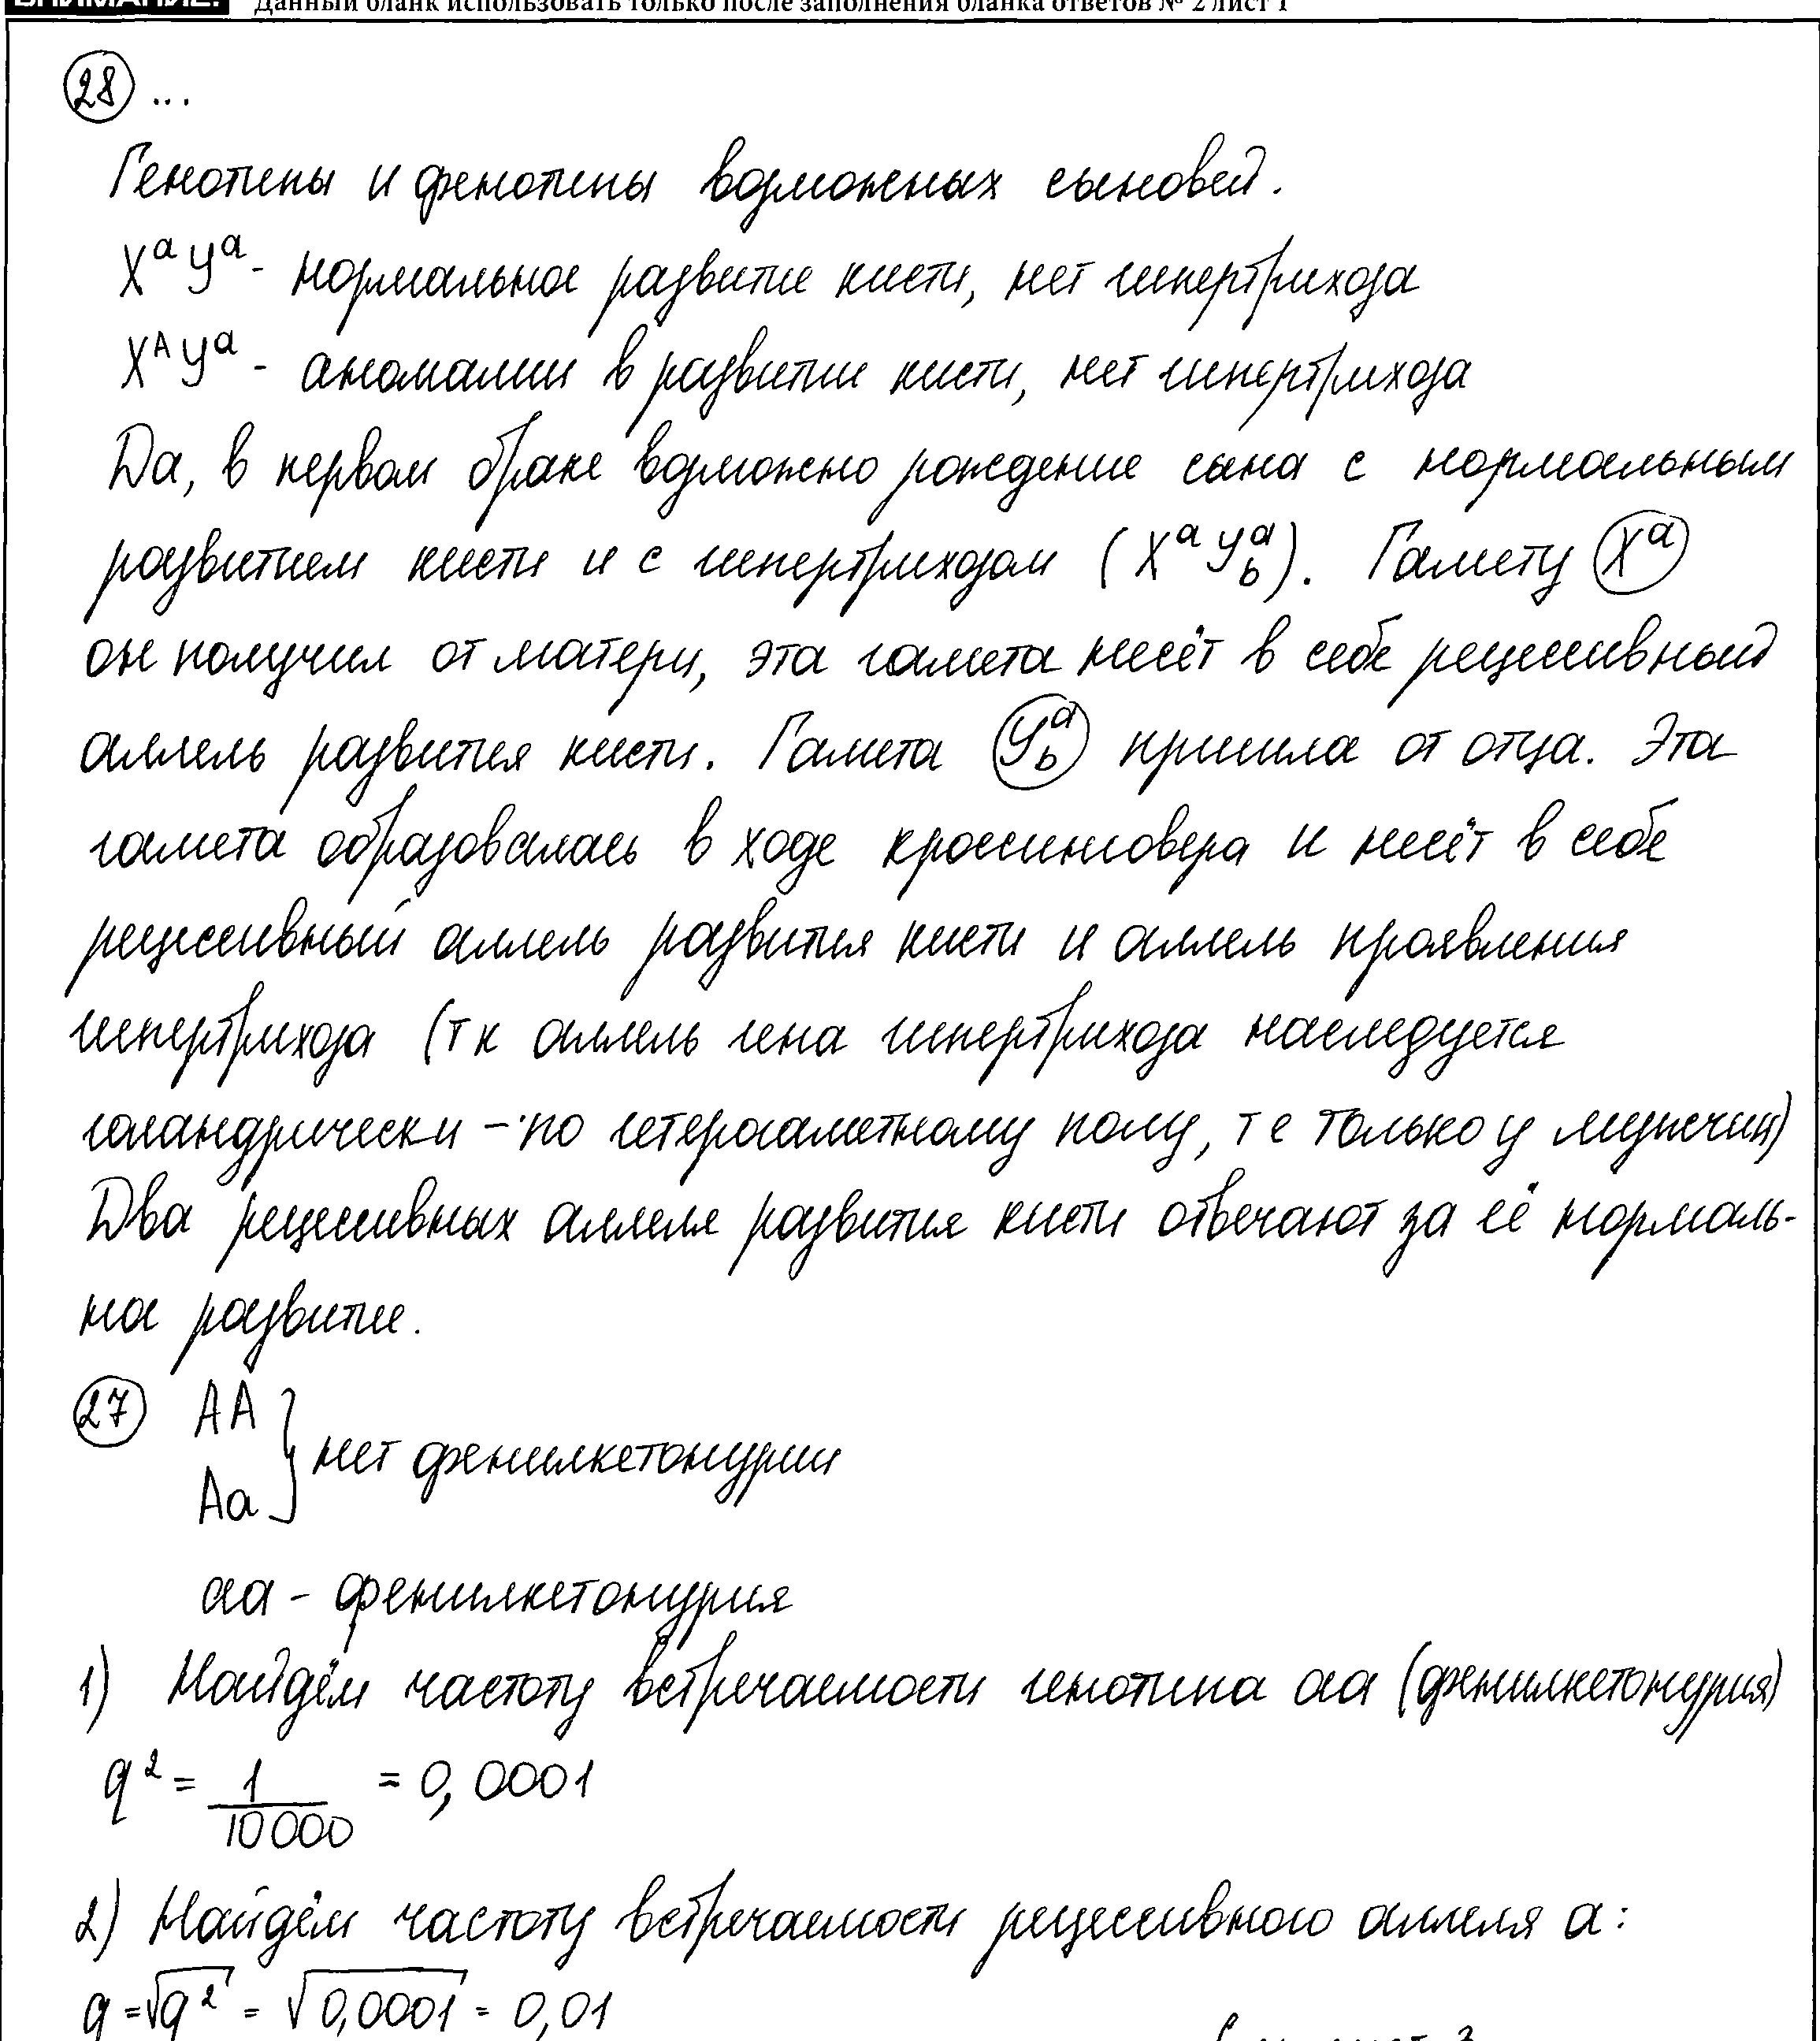 ВНИМАНИЕ! Данный бланк использовать только после заполнения бланка ответов № 2 лист 1
28 ...
Генотипы и фенотипы возможных сыновей.
XᵃYᵃ - нормальное развитие кисти, нет гипертрихоза
XᴬYᵃ - аномалии в развитии кисти, нет гипертрихоза
Да, в первом браке возможно рождение сына с нормальным
развитием кисти и с гипертрихозом (XᵃYᵃb). Гамету Xᵃ
он получил от матери, эта гамета несёт в себе рецессивный
аллель развития кисти. Гамета Yᵃb пришла от отца. Эта
гамета образовалась в ходе кроссинговера и несёт в себе
рецессивный аллель развития кисти и аллель проявления
гипертрихоза (т к аллель гена гипертрихоза наследуется
голандрически - по гетерогаметному полу, т е только у мужчин)
Два рецессивных аллеля развития кисти отвечают за её нормаль-
на развитие.
27 AA
Aa } нет фенилкетонурии
aa - фенилкетонурия
1) Найдём частоту встречаемости генотипа aa (фенилкетонурия)
q² = 1/10000 = 0,0001
2) Найдём частоту встречаемости рецессивного аллеля a:
q = √q² = √0,0001 = 0,01